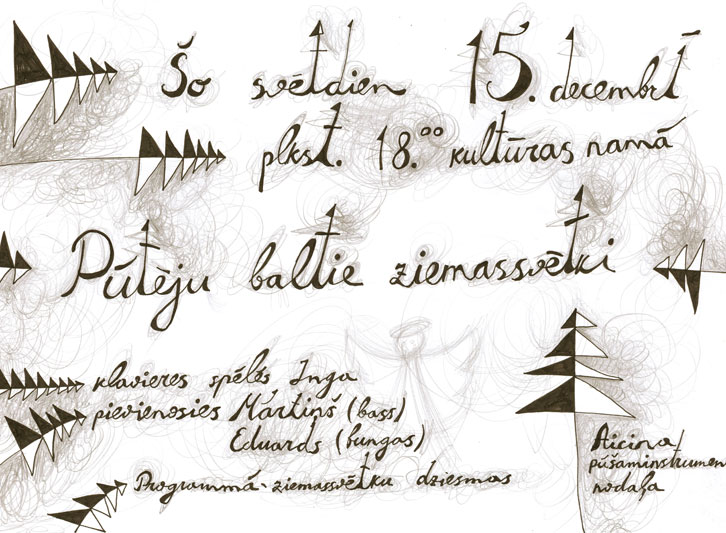 Šo svētdien 15. decembrī
plkst. 18.⁰⁰ kultūras namā
Pūtēju baltie ziemassvētki
klavieres spēlēs Inga
pievienosies Mārtiņš (bass)
Eduards (bungas)
Programmā - ziemassvētku dziesmas
Aicina
pūšaminstrumen
nodaļa